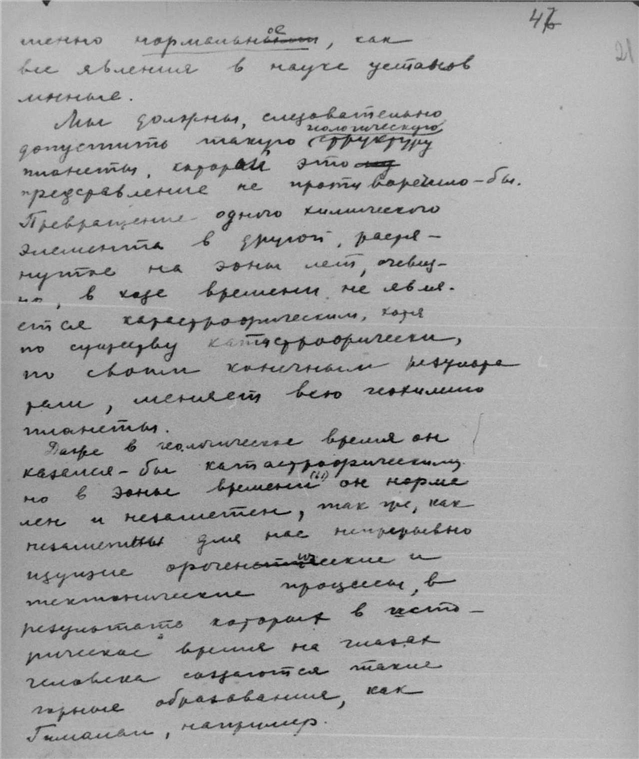 47
21
менно нормальное, как
все явления в науке установ
линные.
Мы должны, следовательно
допустить такую геологическую структуру
планеты, которой это
представление не противоречило-бы.
Превращение одного химического
элемента в другой, растя-
нутое на эоны лет, очевид-
но, в ходе времени не явля-
ется катастрофическим, хотя
по существу катастрофически,
по своим конечным результа
там, меняет всю геохимию
планеты.
Даже в геологическое время он
казался-бы катастрофическим,
но в эоны времени (ы) он норма
лен и незаметен, так же, как
незаметны для нас непрерывно
идущие орогенические и
тектонические процессы, в
результате которых в исто-
рическое время на глазах
человека создаются такие
горные образования, как
Гималаи, например.